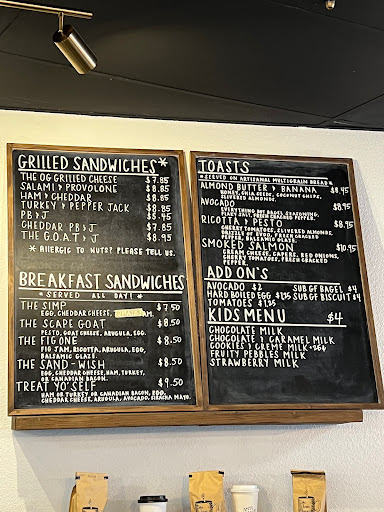 GRILLED SANDWICHES*
THE OG GRILLED CHEESE $7.85
SALAMI & PROVOLONE $8.85
HAM & CHEDDAR $8.85
TURKEY & PEPPER JACK $8.95
PB&J $5.45
CHEDDAR PB&J $7.85
THE G.O.A.T. &J $8.95
* ALLERGIC TO NUTS? PLEASE TELL US.
BREAKFAST SANDWICHES
* SERVED ALL DAY! *
THE SIMP $7.50
EGG, CHEDDAR CHEESE,
THE SCAPE GOAT $8.50
PESTO, GOAT CHEESE, ARUGULA, EGG.
THE FIG ONE $8.50
FIG JAM, RICOTTA, ARUGULA, EGG,
BALSAMIC GLAZE.
THE SAND-WISH $8.50
EGG, CHEDDAR CHEESE, HAM, TURKEY,
OR CANADIAN BACON.
TREAT YO' SELF $9.50
HAM OR TURKEY OR CANADIAN BACON, EGG,
CHEDDAR CHEESE, ARUGULA, AVOCADO, SIRACHA MAYO.
TOASTS
* SERVED ON ARTISANAL MULTIGRAIN BREAD *
ALMOND BUTTER & BANANA $8.45
HONEY, CHIA SEEDS, COCONUT CHIPS,
SLIVERED ALMONDS.
AVOCADO $8.95
EVERYTHING BAGEL SEASONING,
FRESH CRACKED PEPPER.
RICOTTA & PESTO $8.95
CHERRY TOMATOES, SLIVERED ALMONDS,
FRESH CRACKED
PEPPER, BALSAMIC GLAZE.
SMOKED SALMON $10.95
CREAM CHEESE, CAPERS, RED ONIONS,
CHERRY TOMATOES, FRESH CRACKED
PEPPER.
ADD ON'S
AVOCADO $2 SUB GF BAGEL $4
HARD BOILED EGG $1.75 SUB GF BISCUIT $4
TOMATOES $1.75
KIDS MENU $4
CHOCOLATE MILK
CHOCOLATE & CARAMEL MILK
COOKIES & CREME MILK +75¢
FRUITY PEBBLES MILK
STRAWBERRY MILK